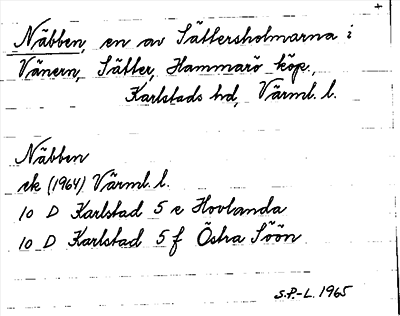 Näbben, en av Sättersholmarna i
Vänern, Sätter, Hammarö köp.,
Karlstads hd, Värml. l.
Näbben
ek (1964) Värml. l.
10 D Karlstad 5 e Hovlanda
10 D Karlstad 5 f Östra Söön
S.P.-L. 1965